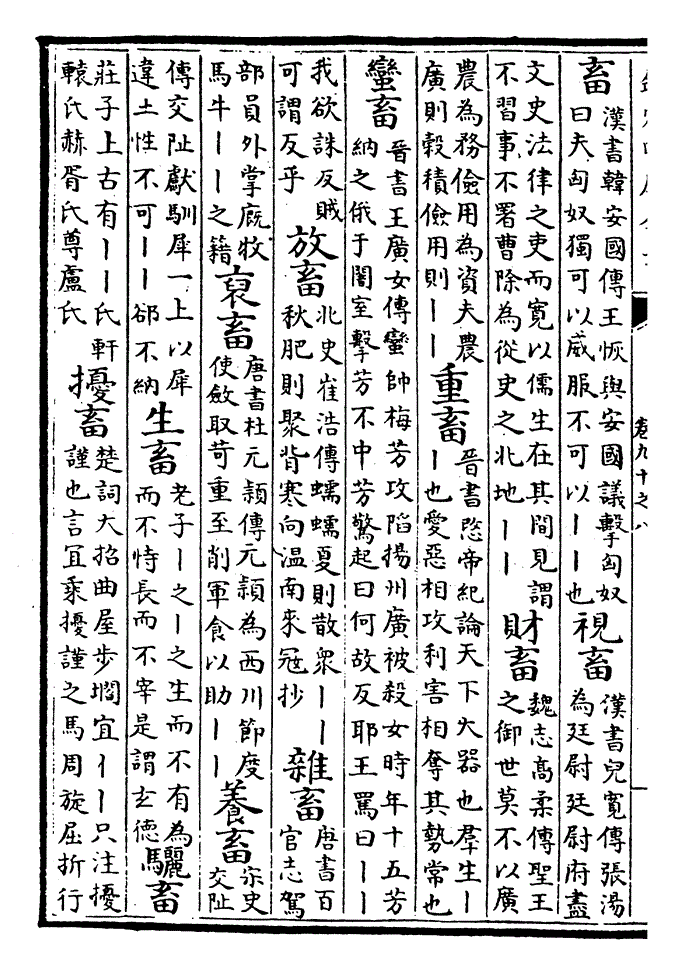 畜漢書韓安國傳王恢與安國議擊匈奴
曰夫匈奴獨可以威服不可以丨丨也
視畜漢書兒寬傳張湯
為廷尉廷尉府盡
文史法律之吏而寬以儒生在其間見謂
不習事不署曹除為從史之北地丨丨
財畜魏志高柔傳聖王
之御世莫不以廣
農為務儉用為資夫農
廣則穀積儉用則丨丨
重畜晉書愍帝紀論天下大器也羣生丨
丨也愛惡相攻利害相奪其勢常也
蠻畜晉書王廣女傳蠻帥梅芳攻陷揚州廣被殺女時年十五芳
納之俄于闇室擊芳不中芳驚起曰何故反耶王罵曰丨丨
我欲誅反賊
可謂反乎
放畜北史崔浩傳蠕蠕夏則散衆丨丨
秋肥則聚背寒向温南來冦抄
雜畜唐書百
官志駕
部員外掌廐牧
馬牛丨丨之籍
裒畜唐書杜元頴傳元頴為西川節度
使斂取苛重至削軍食以助丨丨
養畜宋史
交阯
傳交阯獻馴犀一上以犀
違土性不可丨丨郤不納
生畜老子丨之丨之生而不有為
而不恃長而不宰是謂玄德
驪畜
莊子上古有丨丨氏軒
轅氏赫胥氏尊盧氏
擾畜楚詞大招曲屋步壛宜丨丨只注擾
謹也言宜乘擾謹之馬周旋屈折行
卷九十之八